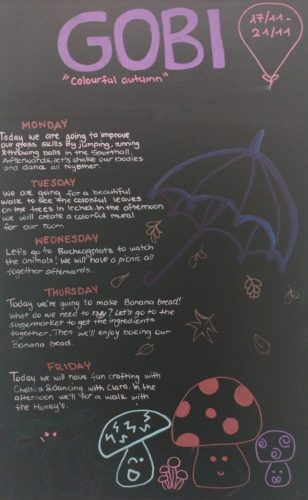 GOBI
"colourful autumn"
17/11-
21/11
MONDAY
Today we are going to improve
our gross skills by jumping, running
& throwing balls in the Sporthall.
Afterwards, let's shake our bodies
and dance all together.
TUESDAY
We are going for a beautiful
walk to see the colorful leaves
on the trees in Irchel. In the afternoon
we will create a colorful mural
for our room
WEDNESDAY
Let's go to to watch
the animals! We will have a picnic all
together afterwards.
THURSDAY
Today we're going to make Banana bread!
What do we need to buy? Let's go to the
supermarket to get the ingredients
together. Then we'll enjoy baking our
Banana bread.
FRIDAY
Today we will have fun crafting with
Chelsia & dancing with Clara. In the
afternoon we'll for a walk with
the Honey's.